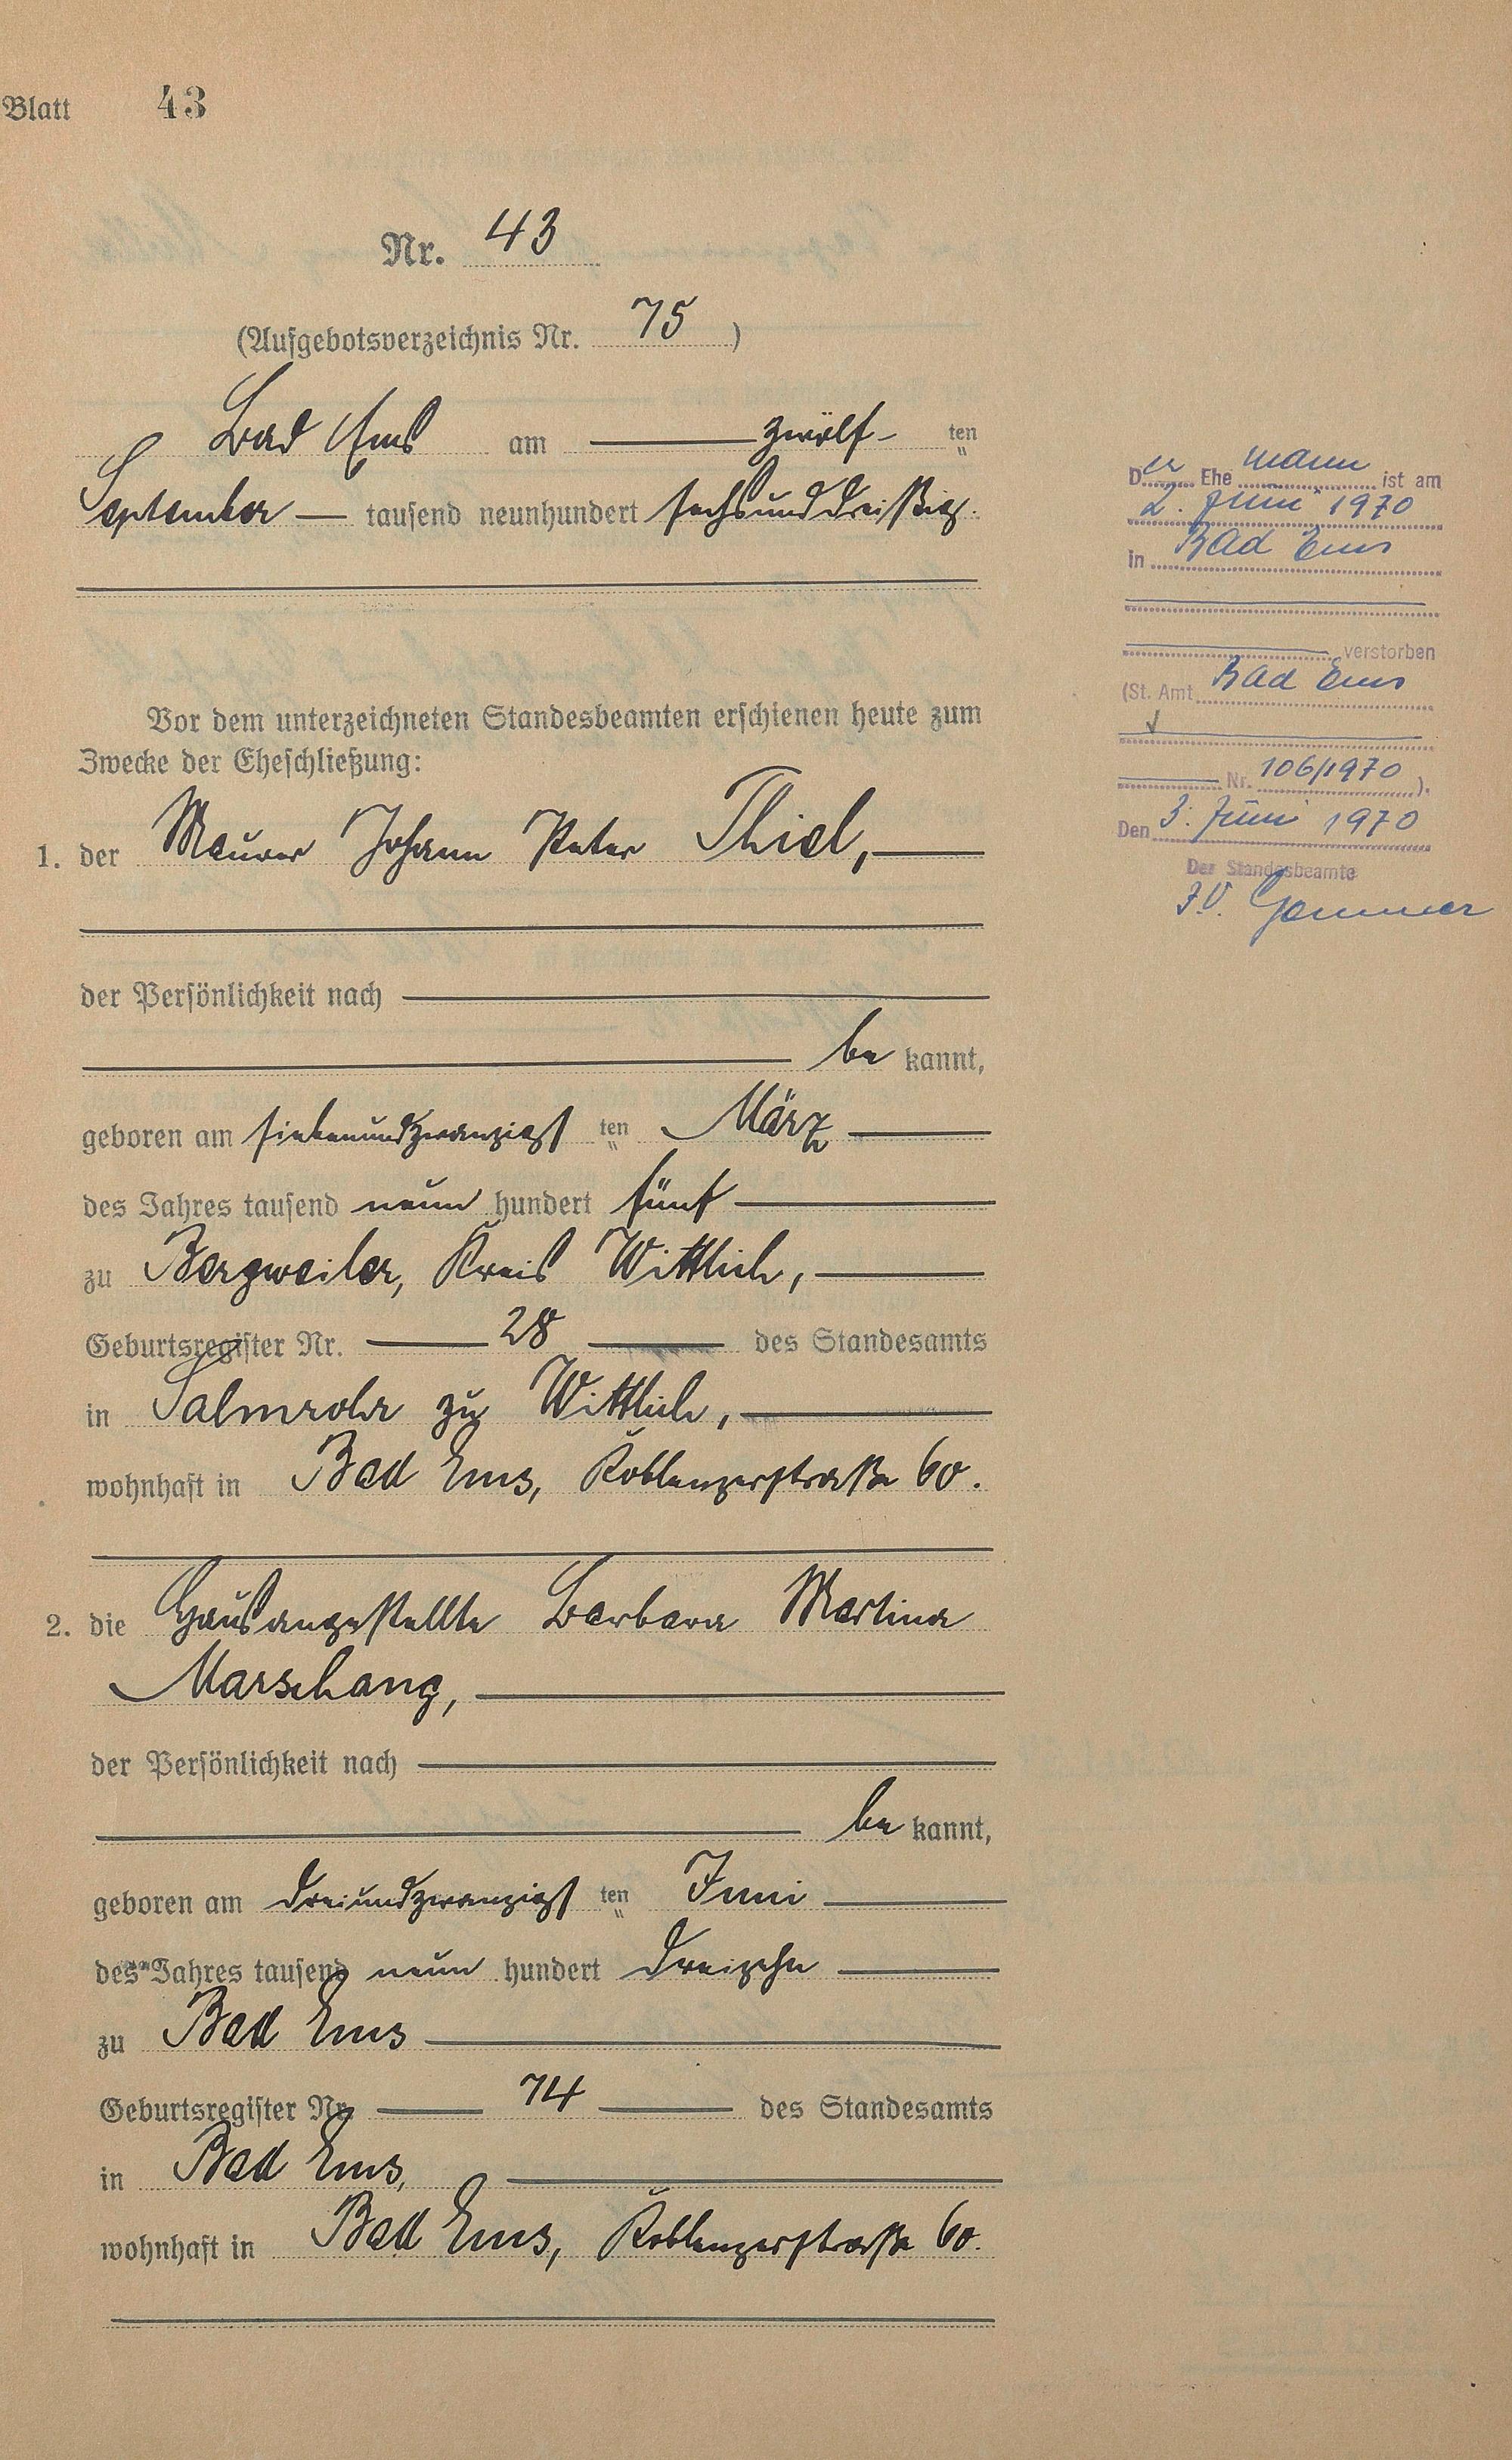 Blatt 43
Nr. 43
(Aufgebotsverzeichnis Nr. 75)
Bad Ems am zwölf- ten
September — tausend neunhundert sechsunddreißig.
Vor dem unterzeichneten Standesbeamten erschienen heute zum
Zwecke der Eheschließung:
1. der Maurer Johann Peter Thiel,
der Persönlichkeit nach
be kannt,
geboren am siebenundzwanzigst ten März
des Jahres tausend neun hundert fünf
zu Bergweiler, Kreis Wittlich,
Geburtsregister Nr. 28 des Standesamts
in Salmrohr zu Wittlich,
wohnhaft in Bad Ems, Koblenzerstraße 60.
2. die Hausangestellte Barbara Martina
Marschang,
der Persönlichkeit nach
be kannt,
geboren am dreiundzwanzigst ten Juni
des Jahres tausend neun hundert dreizehn
zu Bad Ems
Geburtsregister Nr. 74 des Standesamts
in Bad Ems,
wohnhaft in Bad Ems, Koblenzerstraße 60.
Der Ehe mann ist am
2. Juni 1970
in Bad Ems
verstorben
(St. Amt Bad Ems
Nr. 106/1970).
Den 3. Juni 1970
Der Standesbeamte
I.V. Gemmer